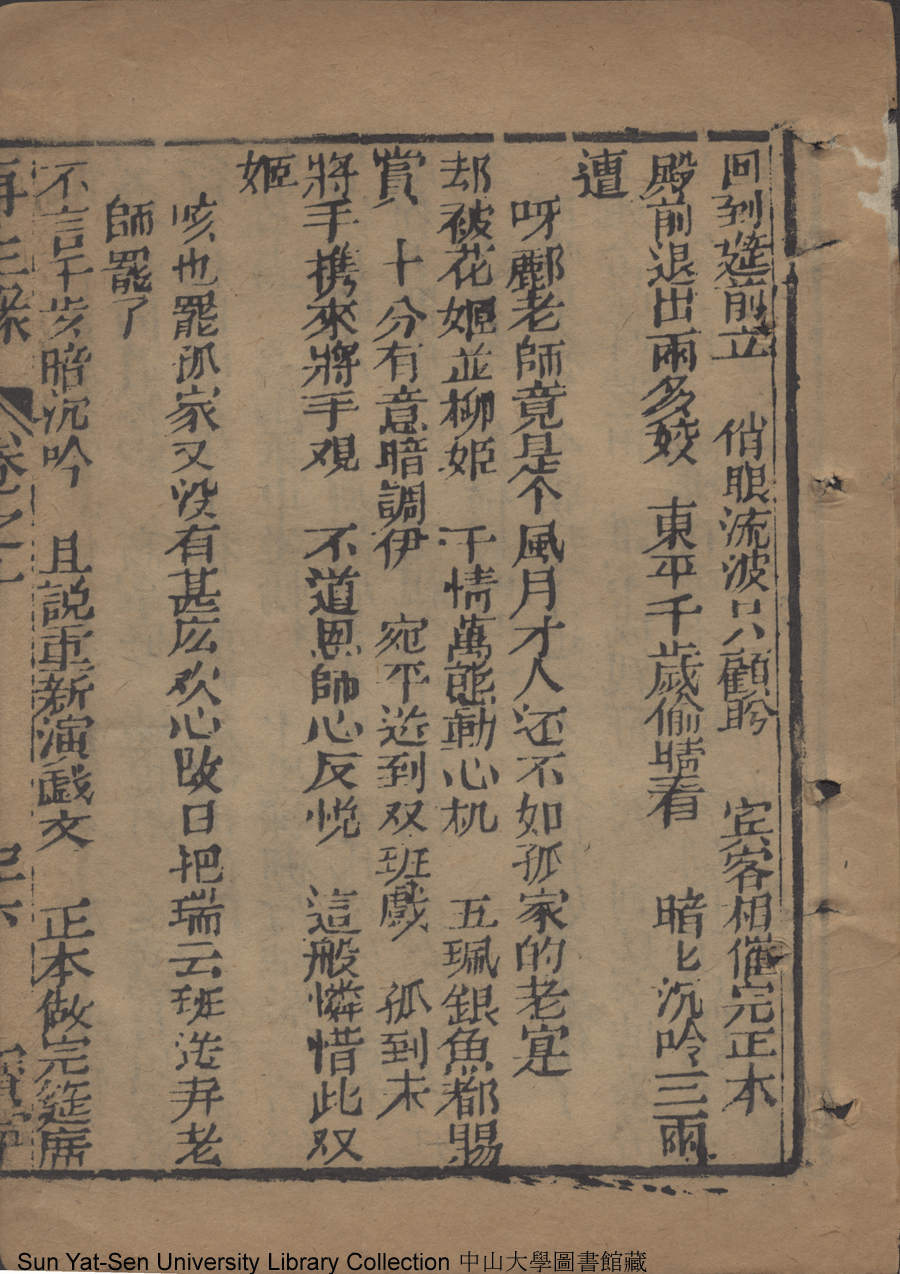 回到筵前立　俏眼流波只顧盻　賓客相催完正本
殿前退出兩多姣　東平千歲偷睛看　暗匕沉吟三兩
遭
呀酈老師竟是个風月才人还不如孤家的老寔
却被花姬並柳姬　千情萬態動心机　五珮銀魚都賜
賞　十分有意暗調伊　宛平送到双班戲　孤到未
將手攜來將手观　不道恩師心反悅　這般憐惜此双
姬
咳也罷孤家又没有甚広欢心改日把瑞云班送弁老
師罷了
不言千歩暗沉吟　且説重新演戲文　正本做完筵席
再生緣　卷之十